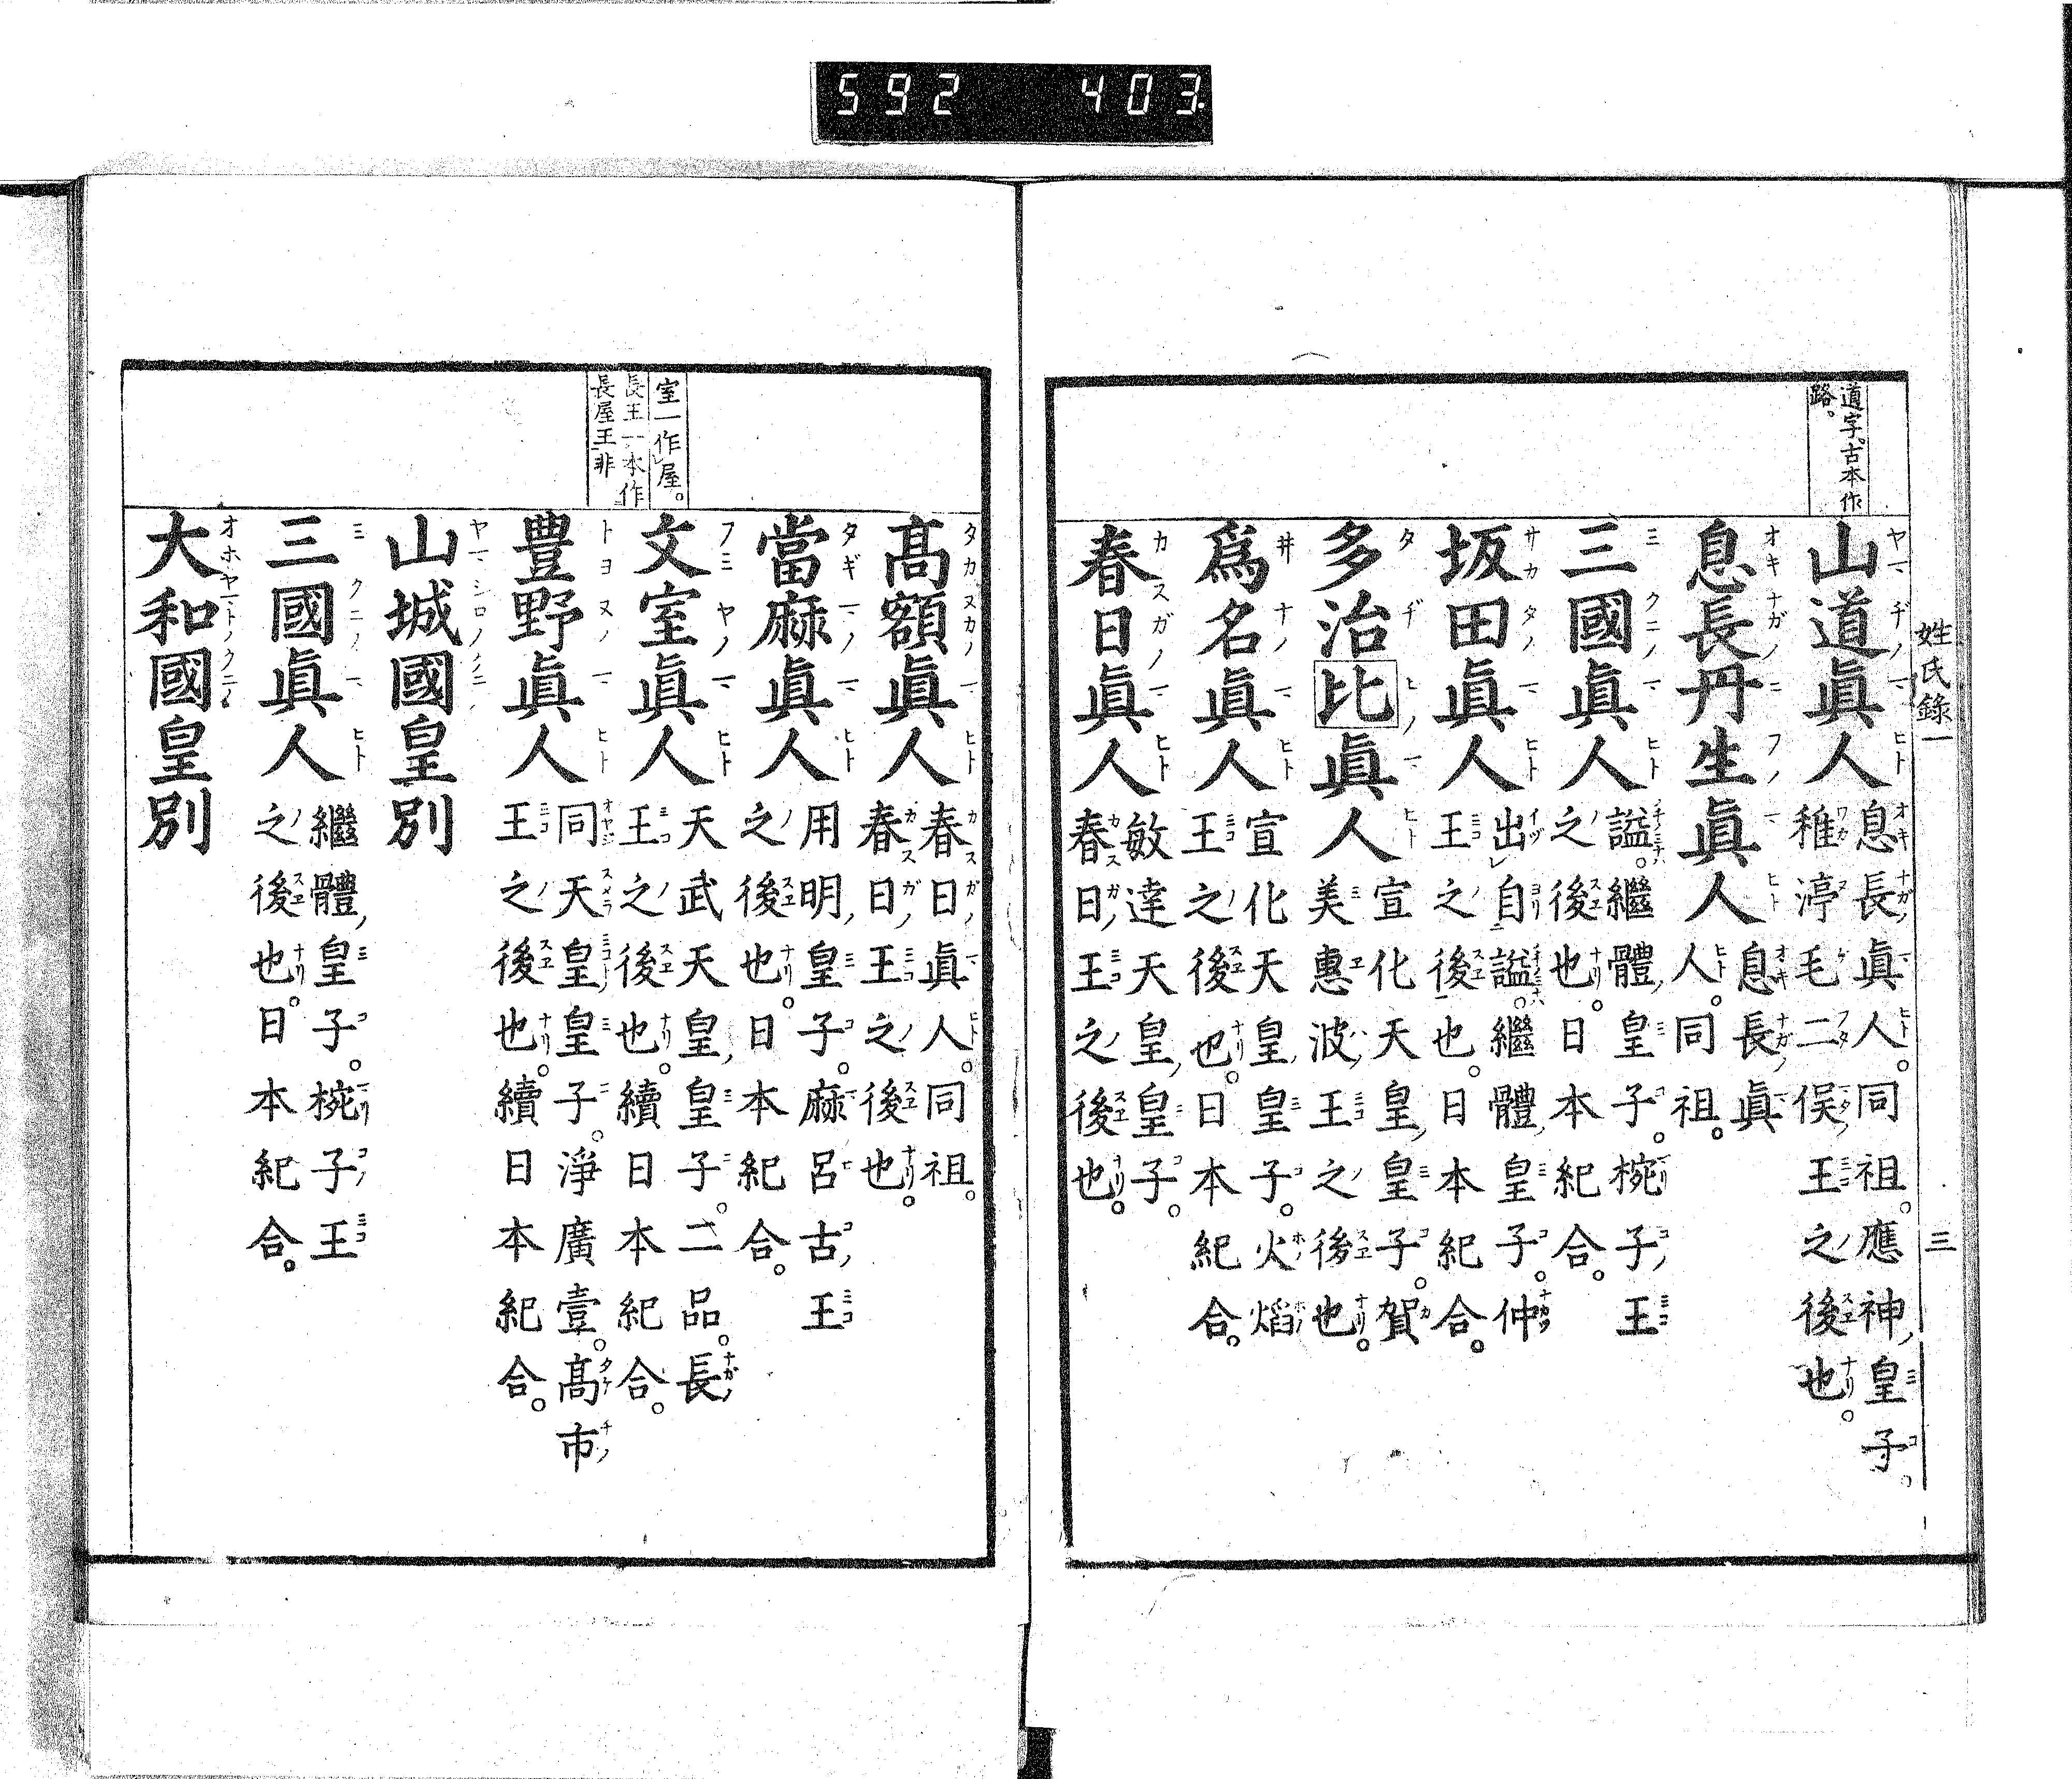 592 403
姓氏錄一 三
道字。古本作
路。
山道眞人
息長眞人。同祖。應神皇子。
稚渟毛二俣王之後也。
息長丹生眞人
息長眞
人。同祖。
三國眞人
謚。繼體皇子。椀子王
之後也。日本紀合。
坂田眞人
出自謚。繼體皇子。仲
王之後也。日本紀合。
多治比眞人
宣化天皇皇子。賀
美惠波王之後也。
爲名眞人
宣化天皇皇子。火焰
王之後也。日本紀合。
春日眞人
敏達天皇皇子。
春日王之後也。
室一作屋。
長王一本作
長屋王非
高額眞人
春日眞人。同祖。
春日王之後也。
當麻眞人
用明皇子。麻呂古王
之後也。日本紀合。
文室眞人
天武天皇皇子。二品。長
王之後也。續日本紀合。
豊野眞人
同天皇皇子。淨廣壹。高市
王之後也。續日本紀合。
山城國皇別
三國眞人
繼體皇子。椀子王
之後也。日本紀合。
大和國皇別